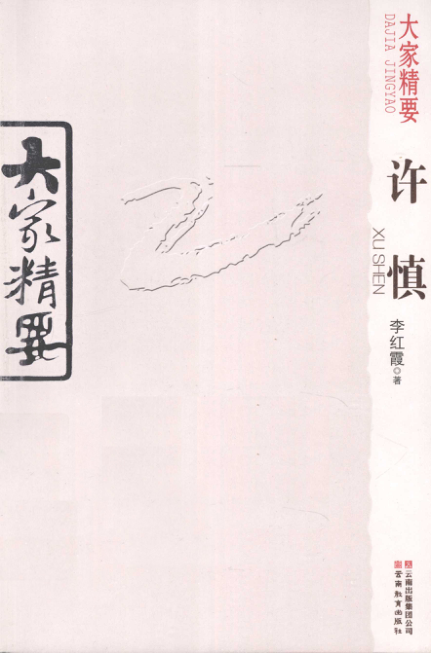 大家精要
DAJIA JINGYAO
许慎
XU SHEN
李红霞◎著
大家精要
云南出版集团公司
云南教育出版社